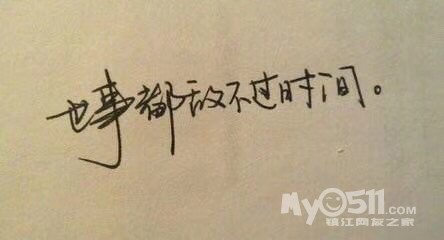 世事都敌不过时间。
My0511.com
镇江网友之家